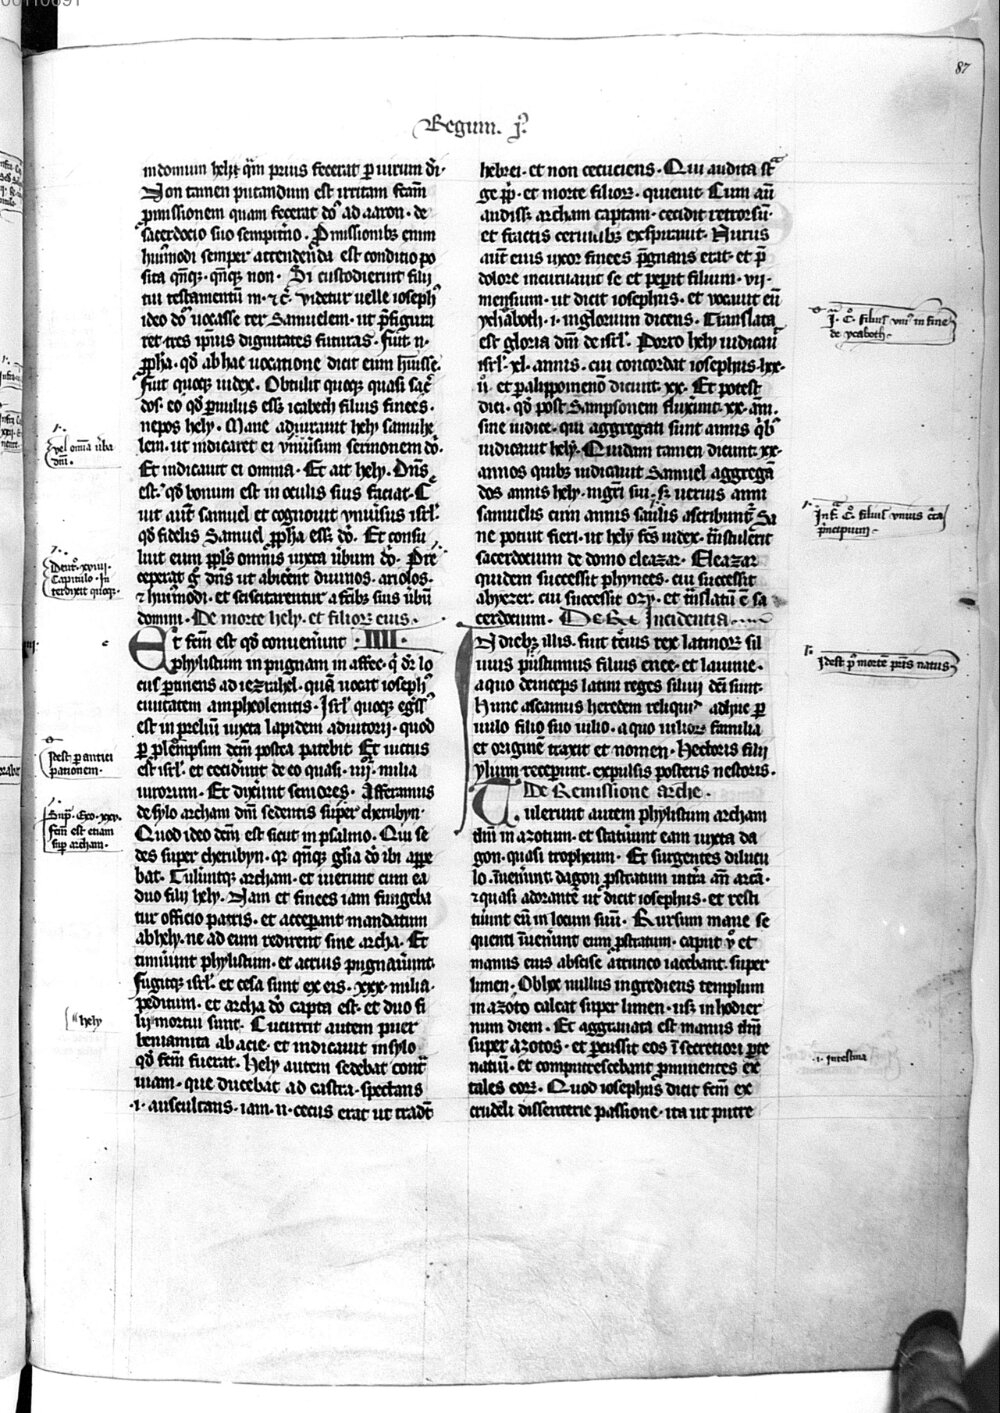 87
Regum. jº.
in domum hely qm prius fecerat per uirum di.
Non tamen putandum est irritam factam
promissionem quam fecerat ds ad aaron. de
sacerdocio suo sempitno. Promissionibus enim
huiusmodi semper attendenda est conditio po
sita quandoque. quandoque non. Si custodierint filii
tui testamentum m. et c. videtur uelle ioseph
ideo dm uocasse ter Samuelem. ut pfigura
ret tres ipsius dignitates futuras. fuit n.
ppha. qd ab hac uocatione dicit eum huisse.
fuit quoque iudex. Obtulit quoque quasi sac
dos. eo qd puulus esset icabeth filius finees.
nepos hely. Mane adiurauit hely samuhe
lem. ut indicaret ei vniusum sermonem do.
Et indicauit ei omnia. Et ait hely. Dns
est. qd bonum est in oculis suis faciat. C
uit aut samuel et cognouit vniusus isrl.
qd fidelis Samuel ppha esset do. Et consu
luit eum ppls omnis iuxta ubum do. Pre
ceperat g dns ut abicent diuinos. ariolos.
et huiusmodi. et sciscitarentur a fatibus suis ubum
domini. De morte hely. et filiorum eius.
Et fcm est qd conuenerunt IIII.
phylistiim in pugnam in affec. q dr lo
cus ptinens ad iezrahel. quam uocat ioseph
ciuitatem ampheolenitis. Isrl quoque egss
est in prelium iuxta lapidem adiutorii. quod
per plempsim dcm postea patebit. Et uictus
est isrl. et ceciderunt de eo quasi. iiiior. milia
uirorum. Et dixerunt seniores. Afferamus
de sylo archam dni sedentis super cherubyn.
Quod ideo dcm est sicut in psalmo. Qui se
des super cherubyn. qr quandoque glia do ibi appe
bat. Tulerunt archam. et uierunt cum ea
duo filii hely. Nam et finees iam fungeba
tur officio patris. et acceperant mandatum
ab hely. ne ad eum redirent sine archa. Et
timuerunt phylistiim. et acrius pugnauerunt.
fugitque isrl. et cesa sunt ex eis. xxx. milia.
peditum. et archa do capta est. et duo fi
lii mortui sunt. Cucurrit autem puer
beniamita ab acie. et indicauit in sylo
qd fcm fuerat. Hely autem sedebat cont
uiam. que ducebat ad castra. spectans
.i. auscultans. iam. n. cecus erat ut tradt
hebrei. et non cecuciens. Qui audita st
ge ppli. et morte filiorum. quieuit. Cum aut
audisset archam captam. cecidit retrorsum.
et fractis ceruicibus exspirauit. Nurus
aut eius uxor finees pgnans erat. et pre
dolore incuruauit se et peperit filium. vii.
mensium. ut dicit iosephus. et uocauit eum
ychaboth. i. inglorium dicens. Translata
est gloria dni de isrl. Porro hely iudicauit
isrl. xl. annis. cui concordat iosephus. lxx.
u. et paralippomenon dicunt. xx. Et potest
dici. qd post Sampsonem fluxerunt. xx. ani.
sine iudice. qui aggregati sunt annis quibus
iudicauit hely. Quidam tamen dicunt. xx.
annos quibus iudicauit Samuel aggrega
dos annis hely. mgri sui. si uerius anni
samuelis cum annis saulis ascribuntur. Sa
ne potuit fieri. ut hely fcs iudex. transtulerit
sacerdocium de domo eleazar. Eleazar
quidem successit phynees. cui successit
abyezer. cui successit ozy. et translatum e sa
cerdocium. Incidentia
In diebus illis. fuit tercius rex latinorum sil
uius postumus filius enee. et lauinie.
a quo deinceps latini reges siluii dci sunt.
Hunc ascanius heredem reliquit adhuc p
uulo filio suo iulio. a quo iuliorum familia
et originem traxit et nomen. Hectoris filii
ylium receperunt. expulsis posteris nestoris.
De Remissione arche.
Tulerunt autem phylistiim archam
dni in azotum. et statuerunt eam iuxta da
gon. quasi tropheum. Et surgentes dilucu
lo. inuenerunt. dagon pstratum in tra an arca.
et quasi adorantem ut dicit iosephus. et resti
tuerunt eum in locum suum. Rursum mane se
quenti inuenerunt eum pstratum. caput u et
manus eius abscise a trunco iacebant. super
limen. Ob hoc nullus ingrediens templum
in azoto calcat super limen. usque in hodier
num diem. Et aggrauata est manus dni
super azotos. et pcussit eos i secretiori parte
natium. et computrescebant prominentes ex
tales eorum. Quod iosephus dicit fcm ex
crudeli dissenterie passione. ita ut putre
vel omnia uba
dni.
Deutº. xviii.
Capitulo. In
terdixit quoque.
Idest per antici
pationem.
Supra. Exo. xxv.
fcm est etiam
super archam.
hely
I. cº. filius vnius in fine
de ycaboth.
Infra. cº. filius vnius circa
principium.
Idest post mortem patris natus
.i. intestina